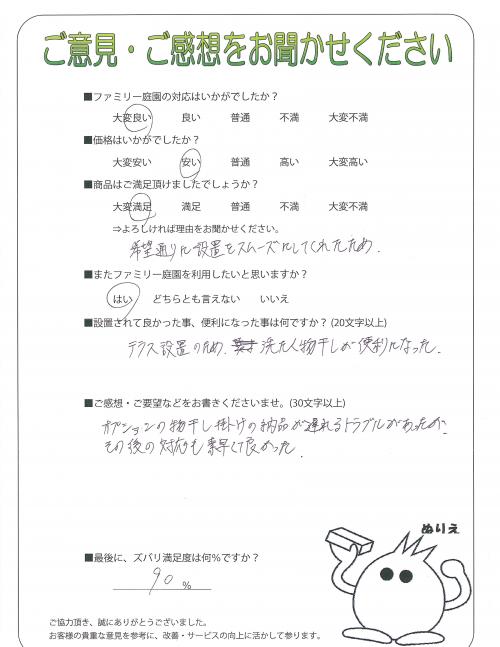 ご意見・ご感想をお聞かせください
■ファミリー庭園の対応はいかがでしたか？
大変良い 良い 普通 不満 大変不満
■価格はいかがでしたか？
大変安い 安い 普通 高い 大変高い
■商品はご満足頂けましたでしょうか？
大変満足 満足 普通 不満 大変不満
⇒よろしければ理由をお聞かせください。
希望通りに設置をスムーズにしてくれたため.
■またファミリー庭園を利用したいと思いますか？
はい どちらとも言えない いいえ
■設置されて良かった事、便利になった事は何ですか？(20文字以上)
テラス設置のため、洗たく物干しが便利になった.
■ご感想・ご要望などをお書きくださいませ。(30文字以上)
オプションの物干し掛けの納品が遅れるトラブルがあったが
その後の対応も素早くて良かった.
ぬりえ
■最後に、ズバリ満足度は何％ですか？
90 %
ご協力頂き、誠にありがとうございました。
お客様の貴重な意見を参考に、改善・サービスの向上に活かして参ります。